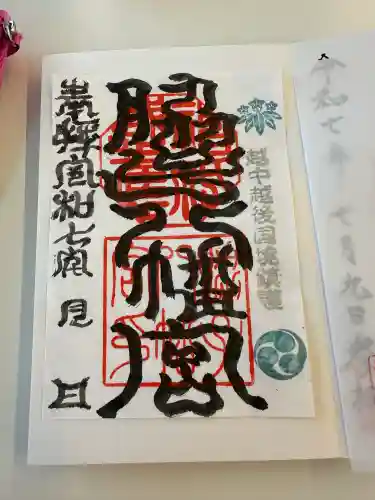 令和七年七月九日
越中越後国境鎮護
脇子八幡宮
奉拝 令和七年 月 日